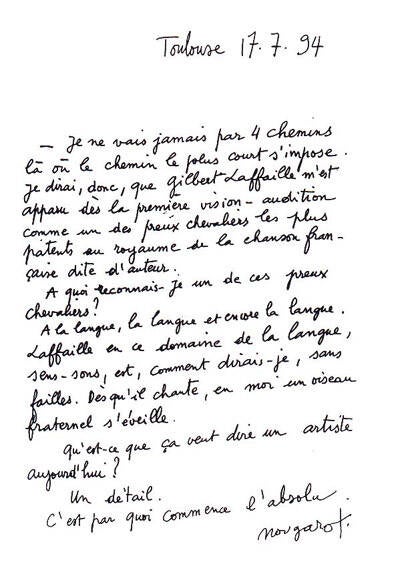 Toulouse 17.7.94
— Je ne vais jamais par 4 chemins
là où le chemin le plus court s'impose.
Je dirai, donc, que Gilbert Laffaille m'est
apparu dès la première vision-audition
comme un des preux chevaliers les plus
patents au royaume de la chanson fran-
çaise dite d'auteur.
A quoi reconnais-je un de ces preux
chevaliers?
A la langue, la langue et encore la langue.
Laffaille en ce domaine de la langue,
sens-sons, est, comment dirais-je, sans
failles. Dès qu'il chante, en moi un oiseau
fraternel s'éveille.
Qu'est-ce que ça veut dire un artiste
aujourd'hui?
Un détail.
C'est par quoi commence l'absolu.
Nougaro.